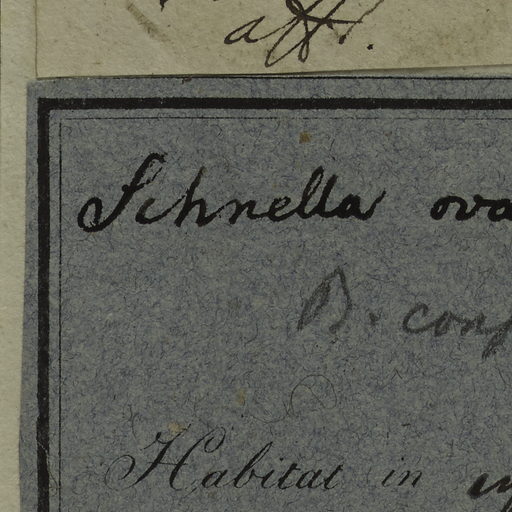 aff.
Schnella ova
B. conf
Habitat in